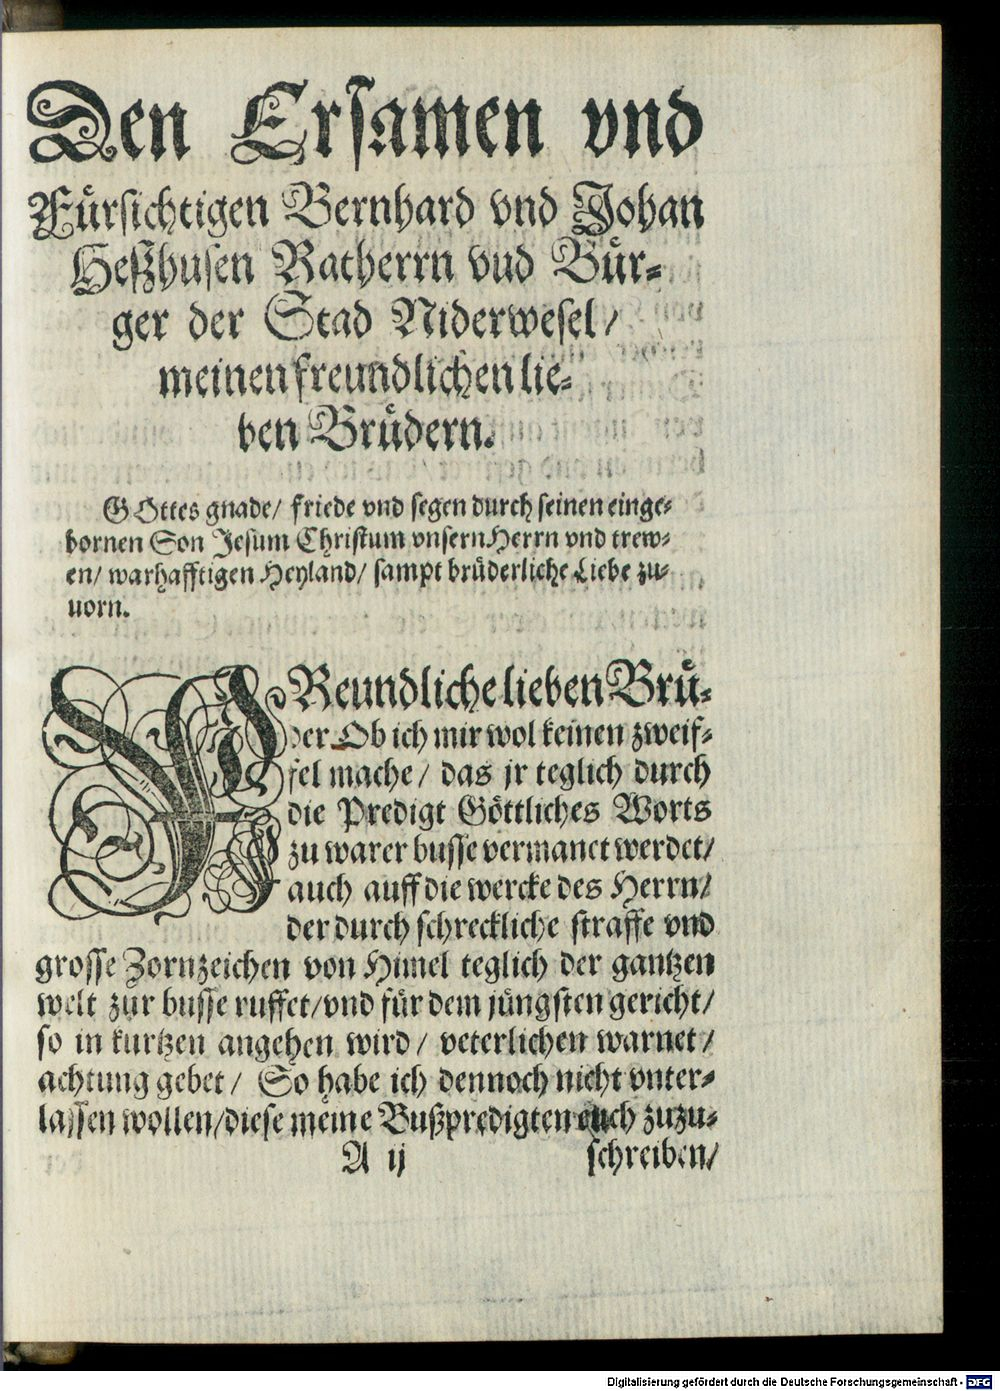 Den Ersamen vnd
Fürsichtigen Bernhard vnd Johan
Heßhusen Ratherrn vud Bür-
ger der Stad Niderwesel/
meinen freundlichen lie-
ben Brüdern.
GOttes gnade/ friede vnd segen durch seinen einge-
bornen Son Jesum Christum vnsern Herrn vnd trew-
en/ warhafftigen Heyland/ sampt brüderliche Liebe zu-
uorn.
FReundliche lieben Brü-
der Ob ich mir wol keinen zweif-
fel mache/ das jr teglich durch
die Predigt Göttliches Worts
zu warer busse vermanet werdet/
auch auff die wercke des Herrn/
der durch schreckliche straffe vnd
grosse Zornzeichen von Himel teglich der gantzen
welt zur busse ruffet/vnd für dem jüngsten gericht/
so in kurtzen angehen wird/ veterlichen warnet/
achtung gebet/ So habe ich dennoch nicht vnter-
lassen wollen/diese meine Bußpredigten euch zuzu-
A ij schreiben/
Digitalisierung gefördert durch die Deutsche Forschungsgemeinschaft - DFG